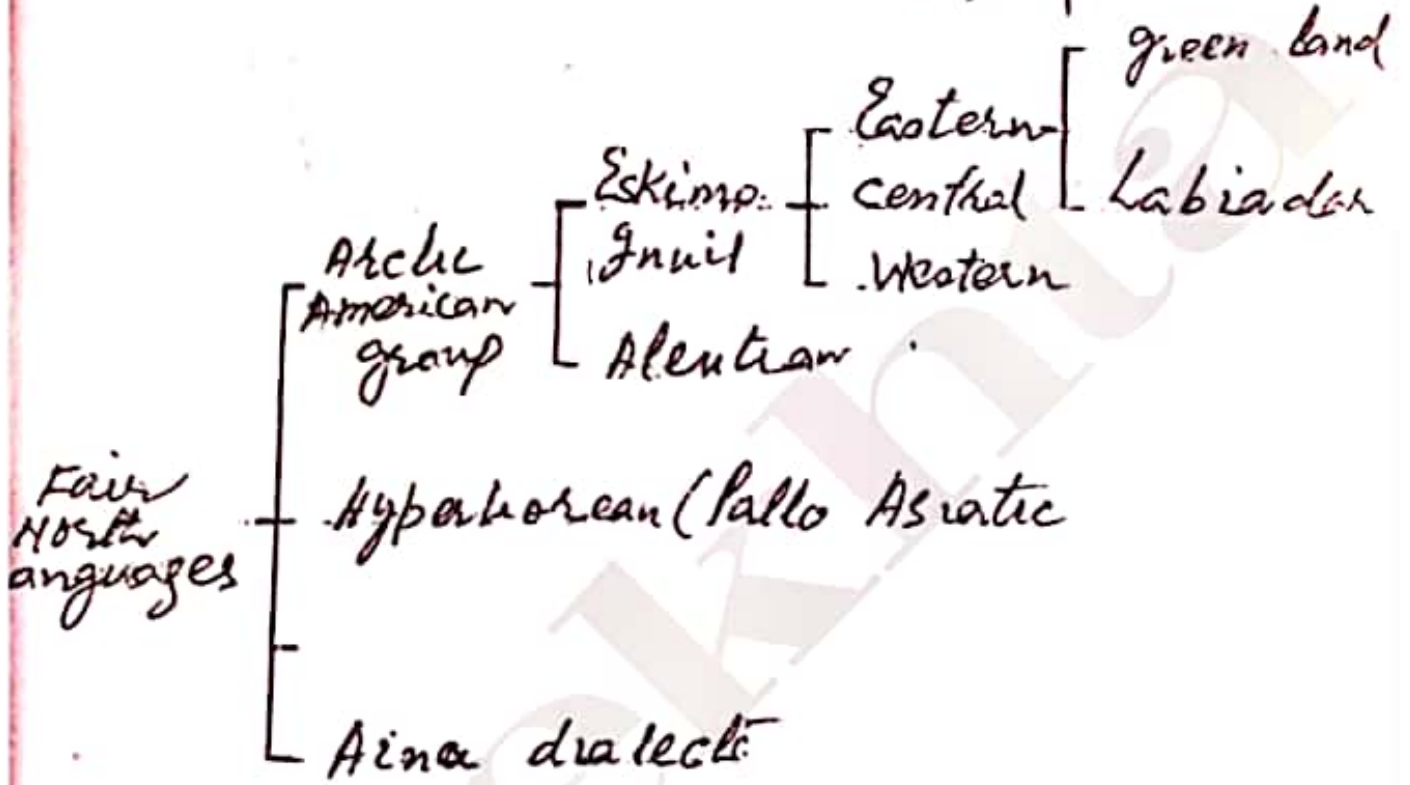 green land
Eastern
Eskimo
central
Labiador
Inuit
Western
Arctic
American
group
Aleutian
Fair
North
anguages
Hyperborean (Pallo Asiatic
Aina dialect